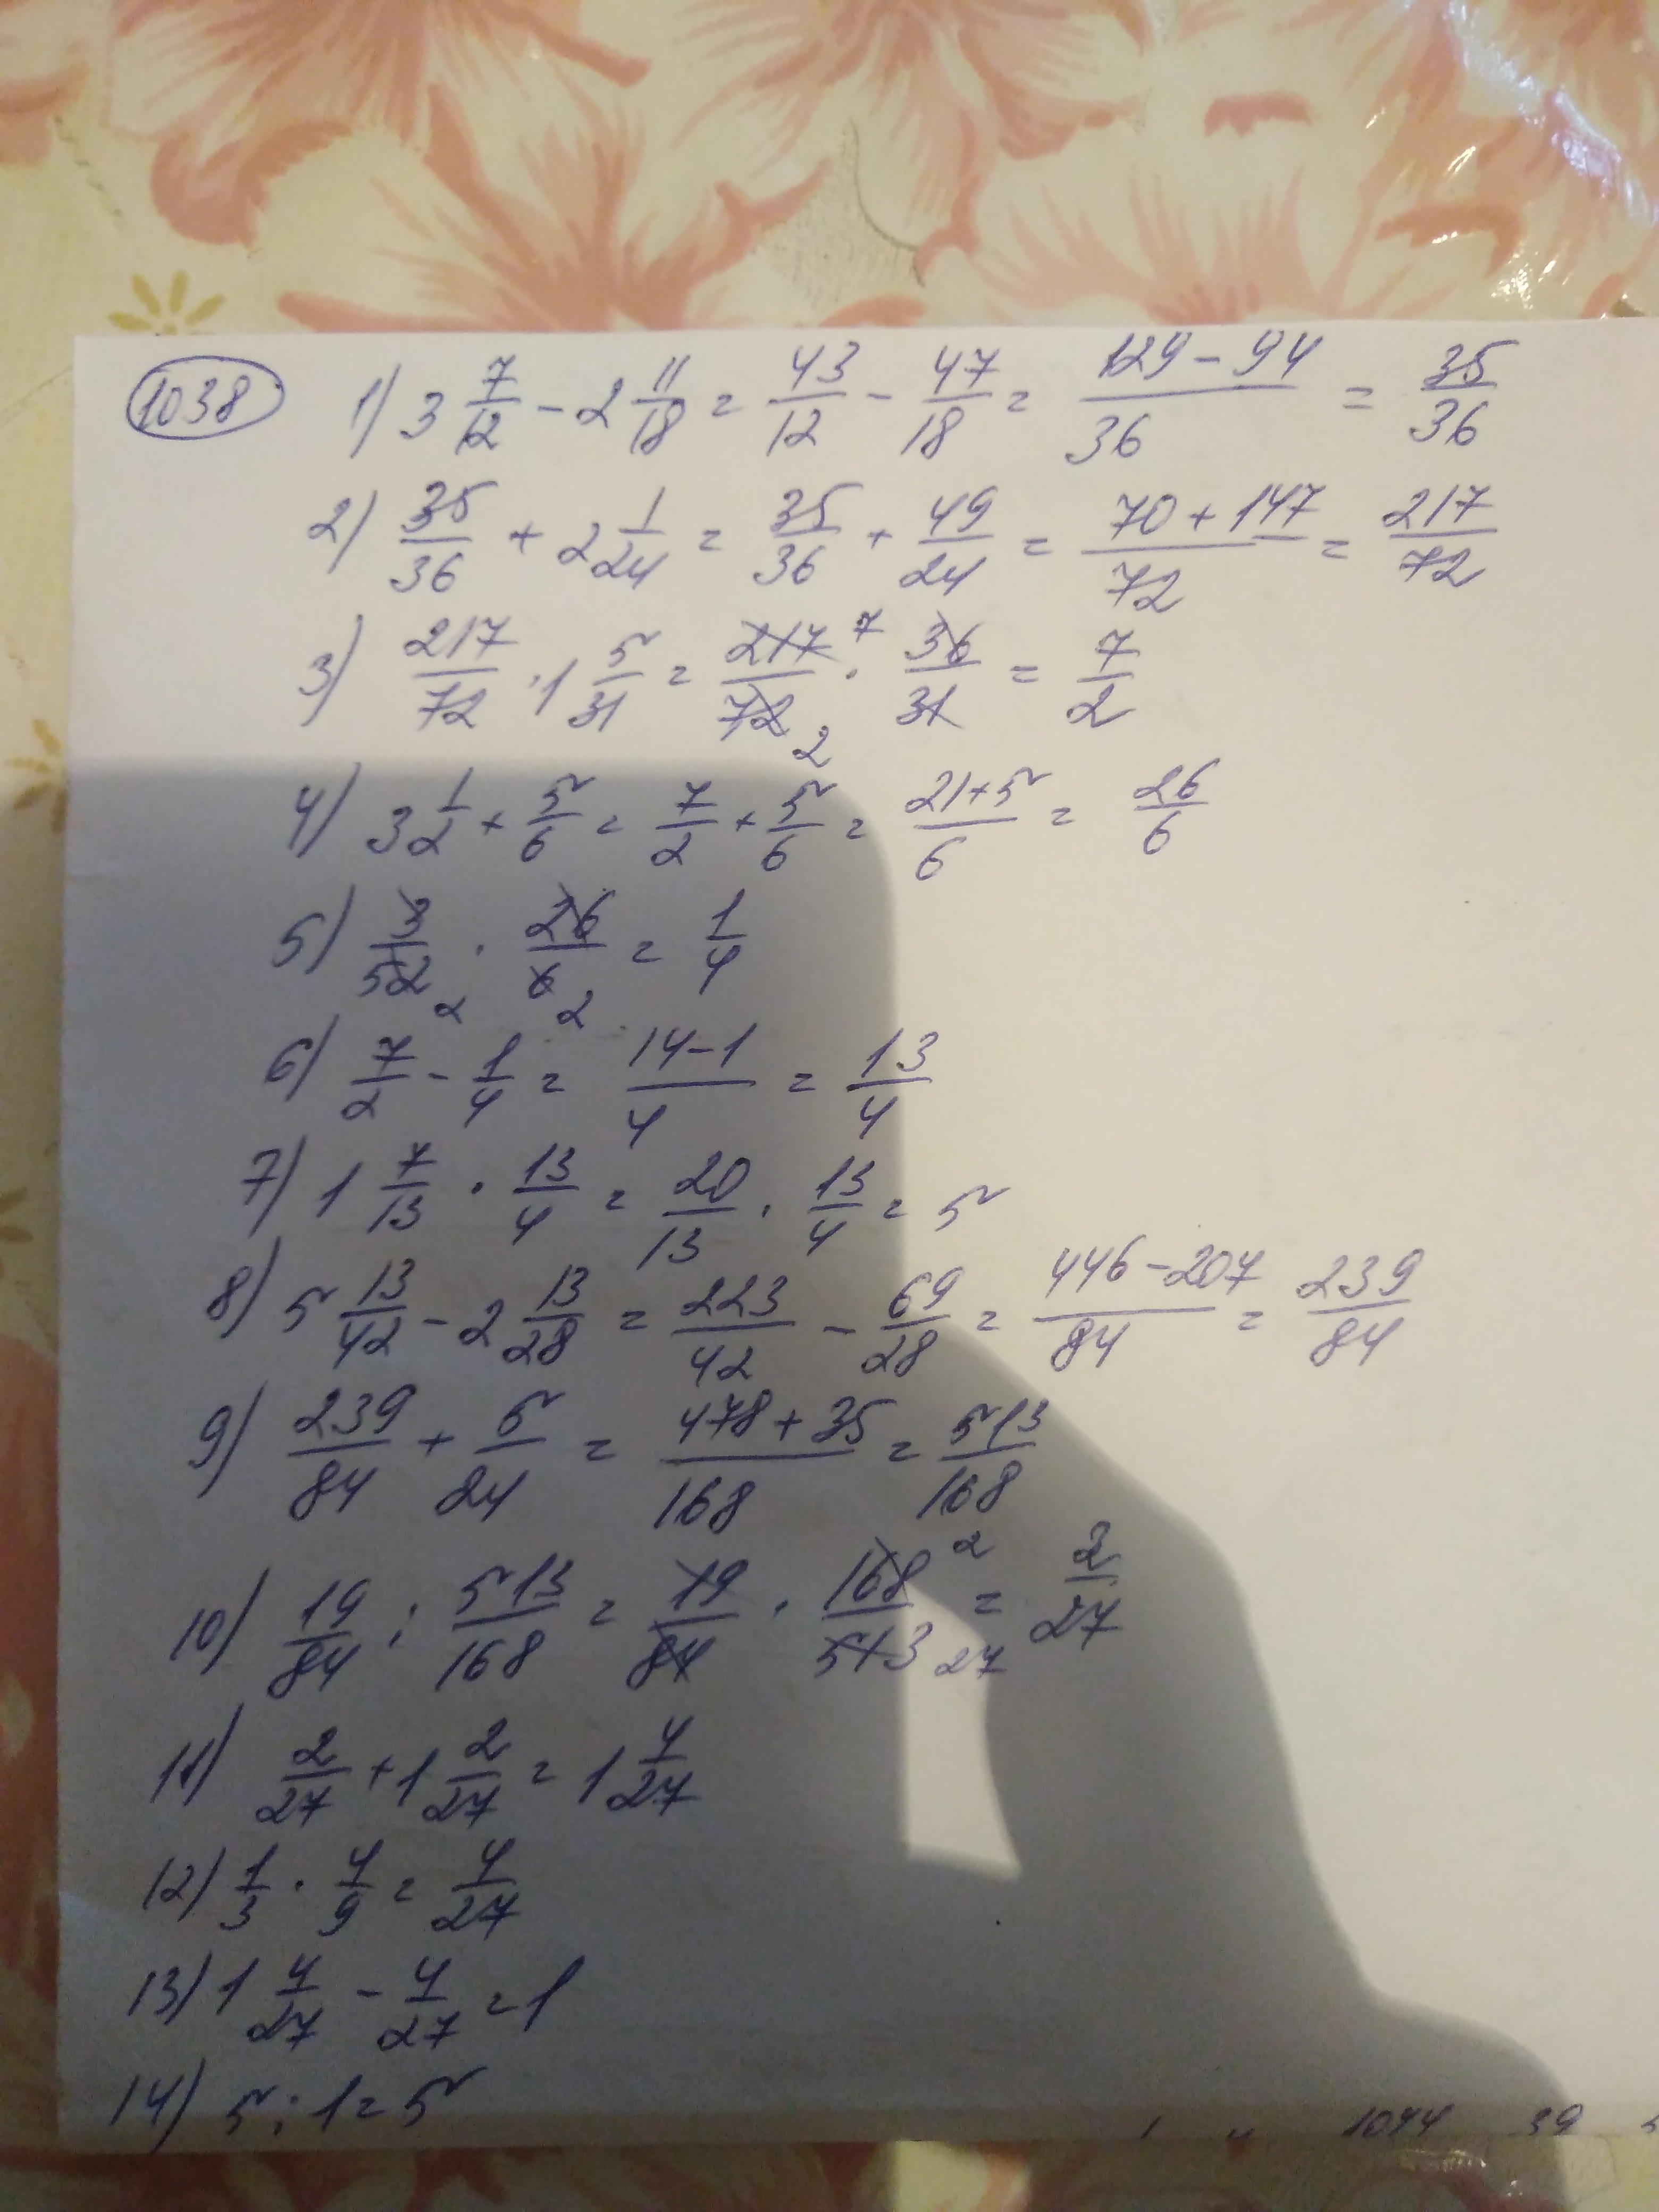 1038 1) 3 7/12 - 2 11/18 = 43/12 - 47/18 = (129 - 94)/36 = 35/36
2) 35/36 + 2 1/24 = 35/36 + 49/24 = (70 + 147)/72 = 217/72
3) 217/72 · 1 5/31 = 217/72 · 36/31 = 7/2
4) 3 1/2 + 5/6 = 7/2 + 5/6 = (21 + 5)/6 = 26/6
5) 3/52 · 26/6 = 1/4
6) 7/2 - 1/4 = (14 - 1)/4 = 13/4
7) 1 7/13 · 13/4 = 20/13 · 13/4 = 5
8) 5 13/42 - 2 13/28 = 223/42 - 69/28 = (446 - 207)/84 = 239/84
9) 239/84 + 5/24 = (478 + 35)/168 = 513/168
10) 19/84 : 513/168 = 19/84 · 168/513 = 2/27
11) 2/27 + 1 2/27 = 1 4/27
12) 1/3 · 4/9 = 4/27
13) 1 4/27 - 4/27 = 1
14) 5 : 1 = 5